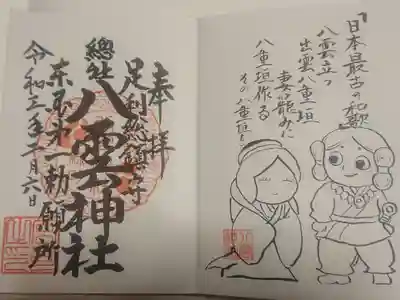 「日本最古の和歌」
八雲立つ
出雲八重垣
妻籠みに
八重垣作る
その八重垣を
奉拝
足利総鎮守
總社 八雲神社
東国第一勅願所
令和三年 月六日